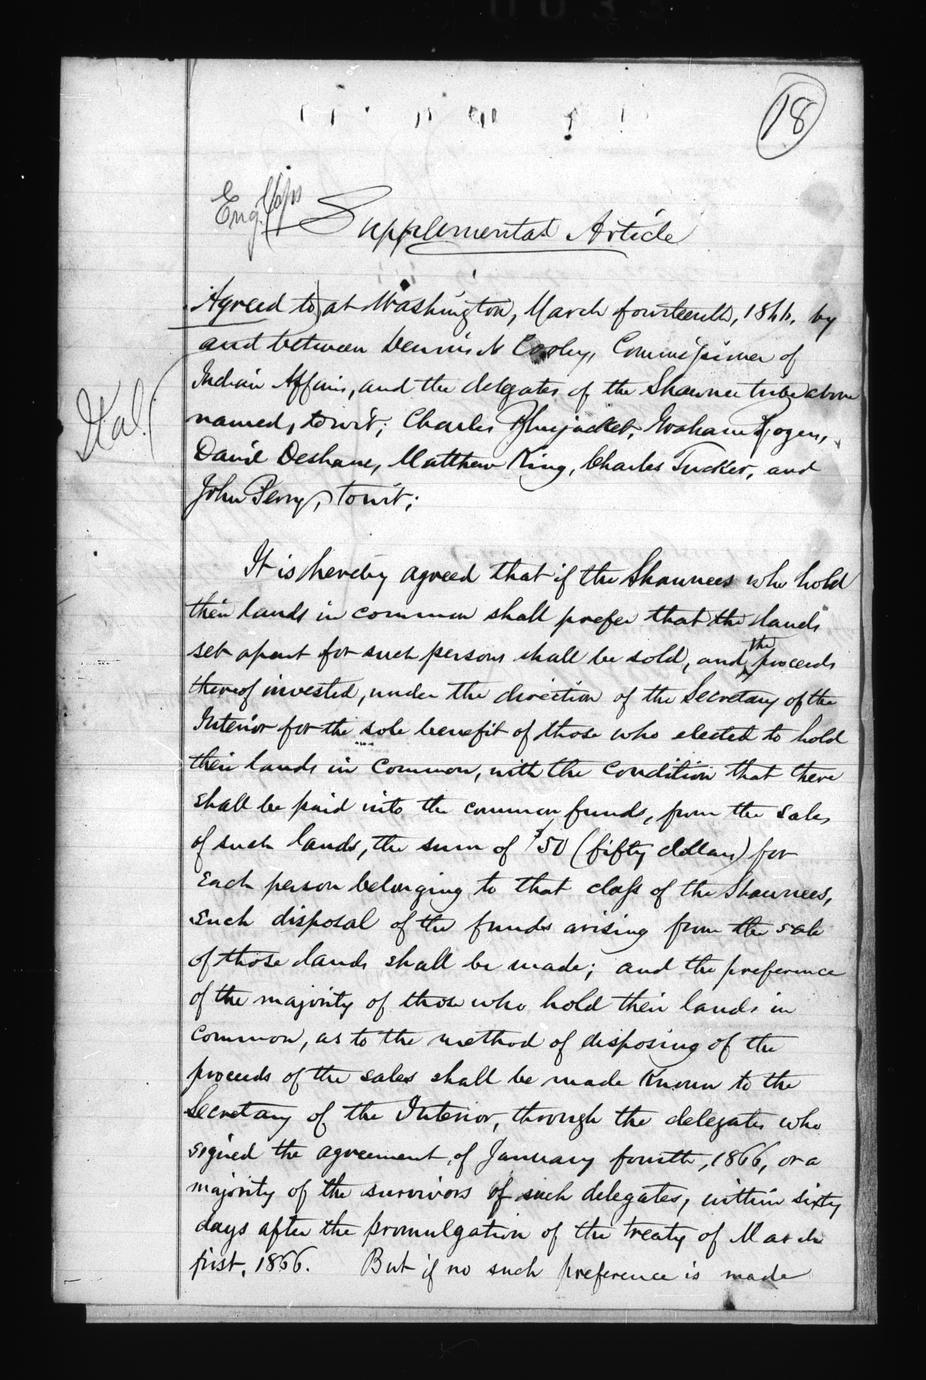 18
Eng. Caps
Supplemental Article
Agreed to at Washington, March fourteenth, 1866, by
and between Dennis N Cooley, Commissioner of
Indian Affairs, and the delegates of the Shawnee tribe above
Ital.
named, to wit; Charles Bluejacket, Graham Rogers,
David Deshane, Matthew King, Charles Tucker, and
John Perry, to wit;
It is hereby agreed that if the Shawnees who hold
their lands in common shall prefer that the lands
set apart for such persons shall be sold, and the proceeds
thereof invested, under the direction of the Secretary of the
Interior for the sole benefit of those who elected to hold
their lands in common, with the condition that there
shall be paid into the common funds, from the sales
of such lands, the sum of $50 (fifty dollars) for
each person belonging to that class of the Shawnees,
such disposal of the funds arising from the sale
of those lands shall be made; and the preference
of the majority of those who hold their lands in
common, as to the method of disposing of the
proceeds of the sales shall be made known to the
Secretary of the Interior, through the delegates who
signed the agreement of January fourth, 1866, or a
majority of the survivors of such delegates, within sixty
days after the promulgation of the treaty of March
first, 1866. But if no such preference is made